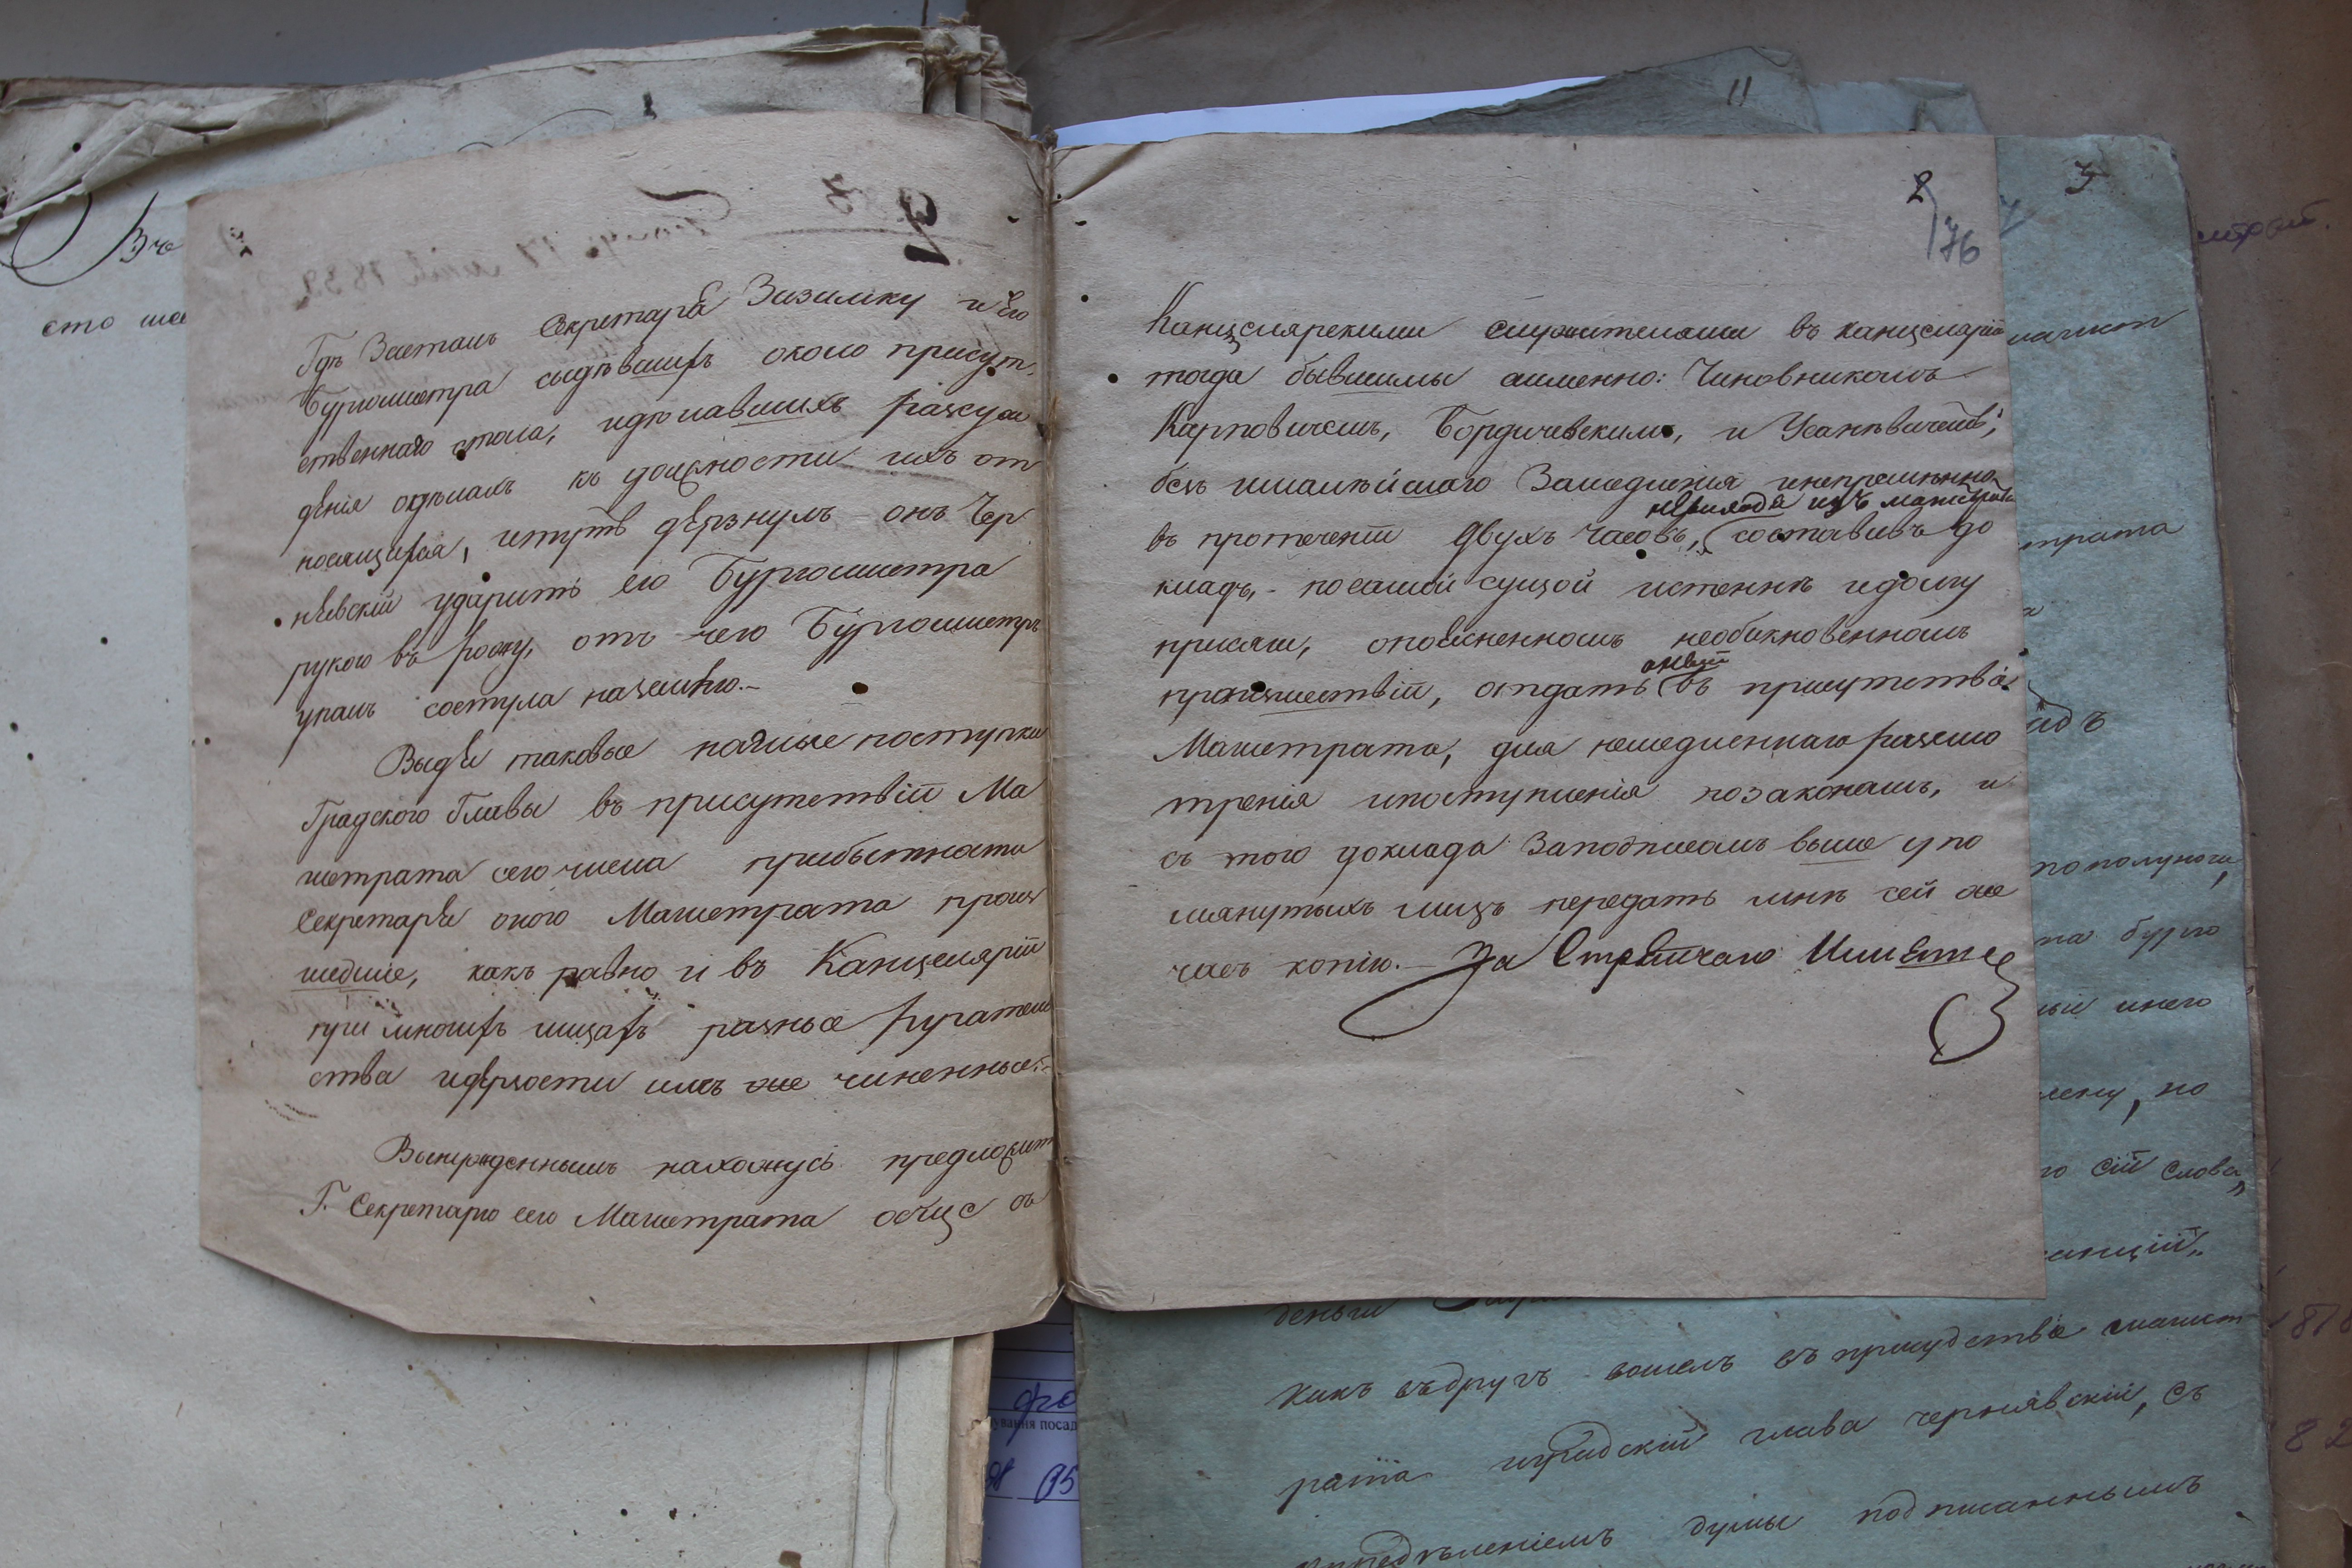 Гдѣ Засталъ Секретара Зизимку и Его
Бургомистра сидѣвшихъ около присут-
ственнаго стола, идѣлавшихъ разсуж
дѣнія одѣлахъ къ должности ихъ от
носящихся, итутъ дѣрзнулъ онъ Чер
нѣвскій ударить его Бургомистра
рукою въ рожу, отъ чего Бургомистръ
упалъ состула наземлю.-
Выдѣ таковые наглые поступки
Градского Главы въ присутствій Ма
гистрата сего числа прибытности
Секретарѣ оного Магистрата произ
шедшіе, какъ равно и въ Канцелярій
при многихъ лицахъ разные ругатель
ства идѣрзости имъ же чиненные.-
Вынужденнымъ нахожусь предложить
Г. Секретарю сего Магистрата обще съ
2
76
Канцелярскими служителями въ канцелярій
тогда бывшимы аименно: Чиновникомъ
Карповичемъ, Бордичевскимъ, и Усаневичемъ,
безъималѣйшаго Замедленія инепремѣнно
невиходя изъ магистрата
въ протеченіи двухъ часовъ, составивъ до
кладъ, - посамой сущой истеннѣ идолгу
присяги, опоясненномъ необикновенномъ
оный
произшествій, отдать въ присутствіе
Магистрата, для немедленнаго разсмо
тренія ипоступленія позаконамъ, и
съ того доклада Заподписомъ выше упо
мянутыхъ лицъ передать мнѣ сей же
часъ копію.- За Стряпчаго
3
11
трата
пополуночи,
на бурго
инего
но
сій слова,,
деньги
какъ въдругъ вошелъ въ присудствіе магист
рата иградскій глава чернявскій, съ
опредѣленіемъ думы подписаннымъ